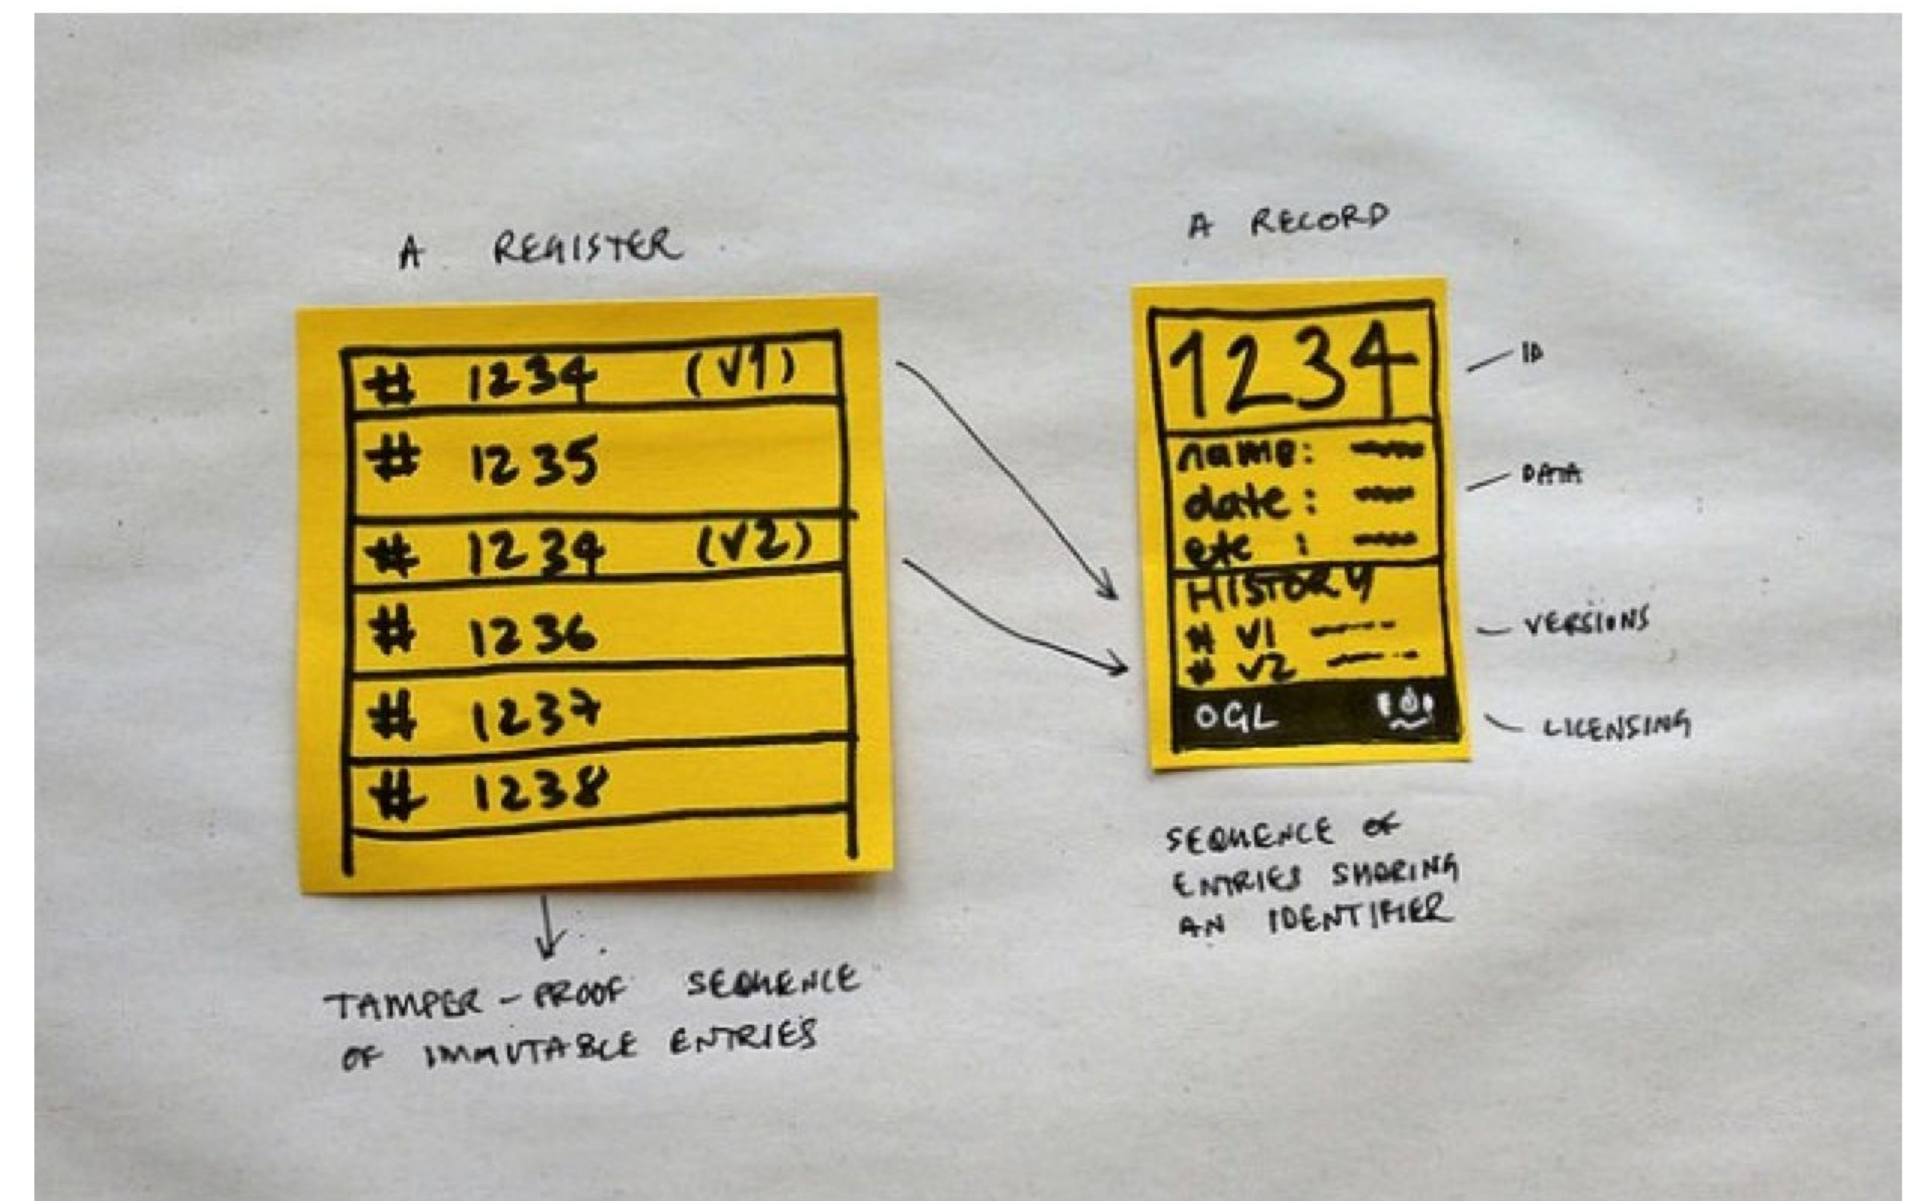 A REGISTER
# 1234 (V1)
# 1235
# 1234 (V2)
# 1236
# 1237
# 1238
TAMPER-PROOF SEQUENCE
OF IMMUTABLE ENTRIES
A RECORD
1234
name:
date:
etc:
HISTORY
# V1
# V2
OGL
ID
DATA
VERSIONS
LICENSING
SEQUENCE OF
ENTRIES SHARING
AN IDENTIFIER